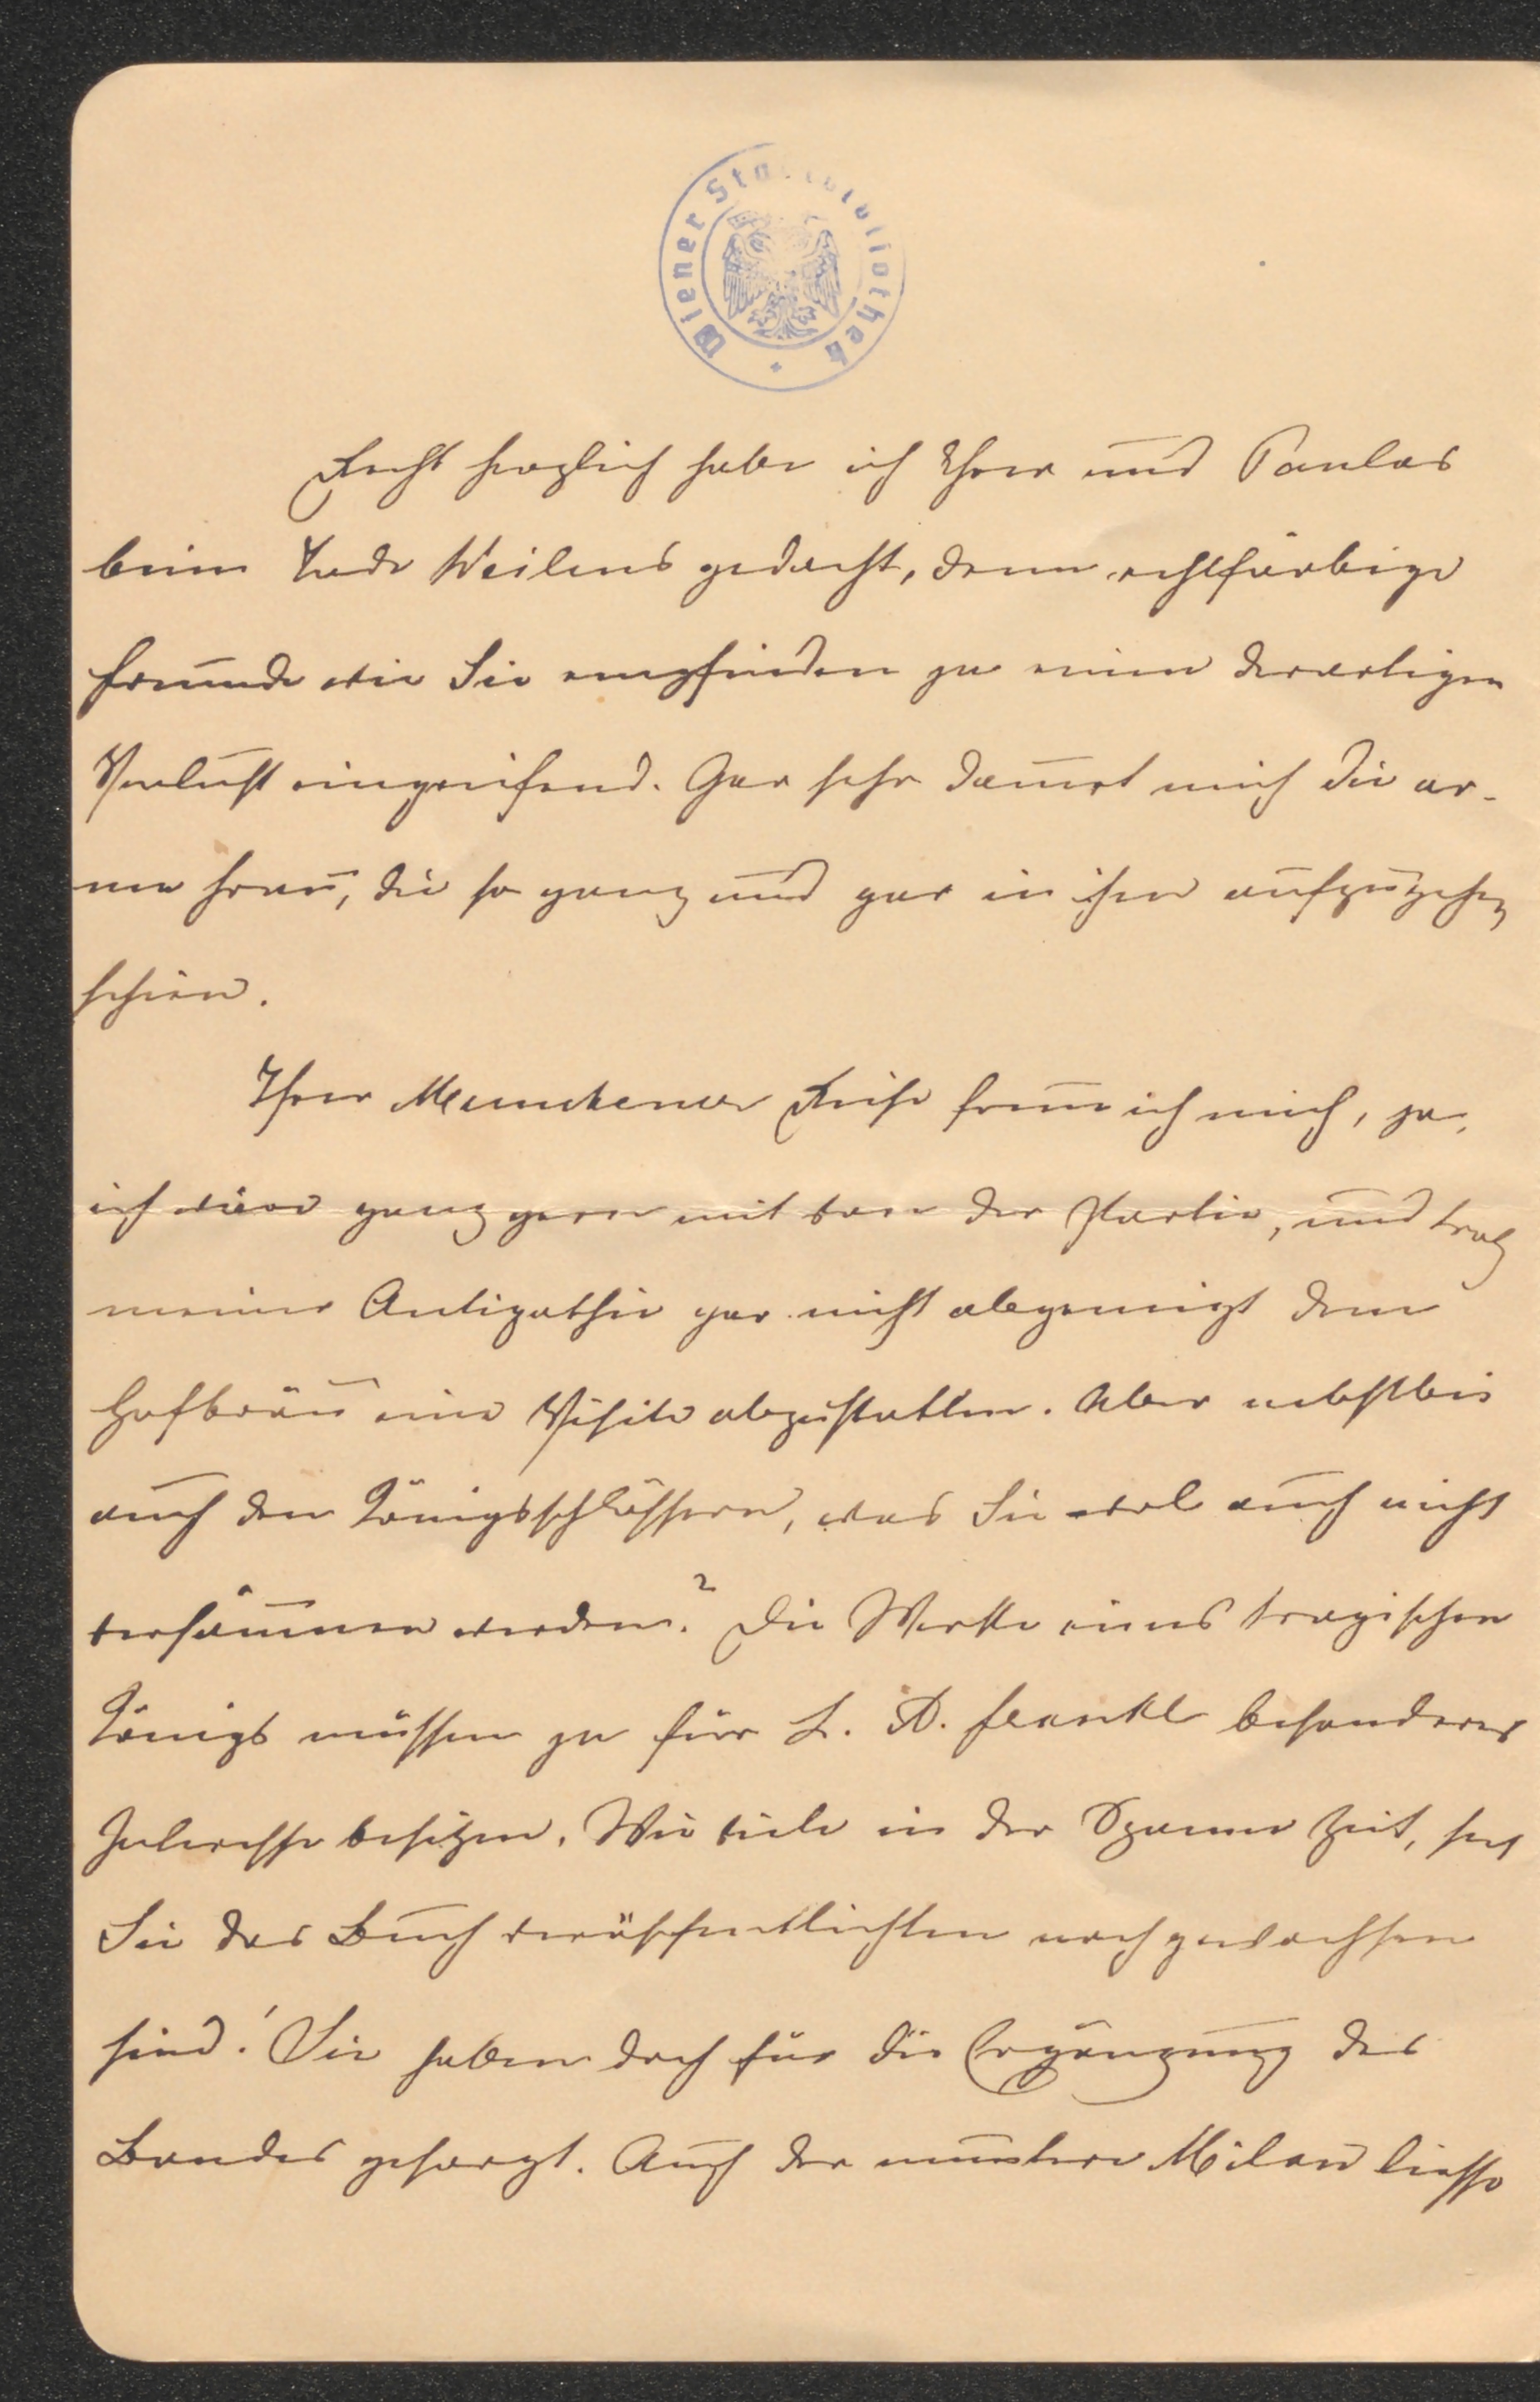 Wiener Stadtbibliothek
Recht herzlich habe ich Ihrer und Paulas
beim Tode Weilens gedacht, denn echtfärbige
Freunde wie Sie empfinden ja einen derartigen
Verlust eingreifend. Gar sehr dauert mich die ar-
me Frau, die so ganz und gar in ihm aufzugehen
schien.
Ihrer Münchener Reise freue ich mich, ja,
ich wäre ganz gern mit von der Partie, und trotz
meiner Antipathie gar nicht abgeneigt dem
Hofbräu eine Visite abzustatten. Aber nebstbei
auch den Königsschlössern, was Sie wol auch nicht
versäumen werden? Die Werke eines tragischen
Königs müssen ja für L. A. Frankl besonderes
Interesse besitzen. Wie viele in der Spanne Zeit, seit
Sie das Buch veröffentlichten nachgewachsen
sind! Sie haben doch für die Ergänzung des
Bandes gesorgt. Auch der muntere Milan liesse